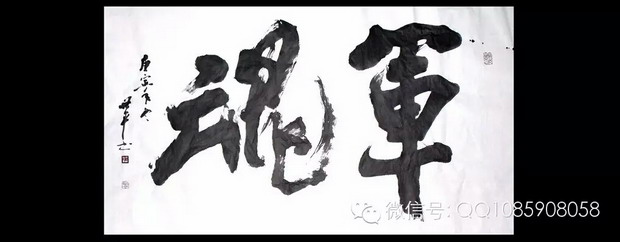 軍魂
庚寅年
微信号: QQ1085908058